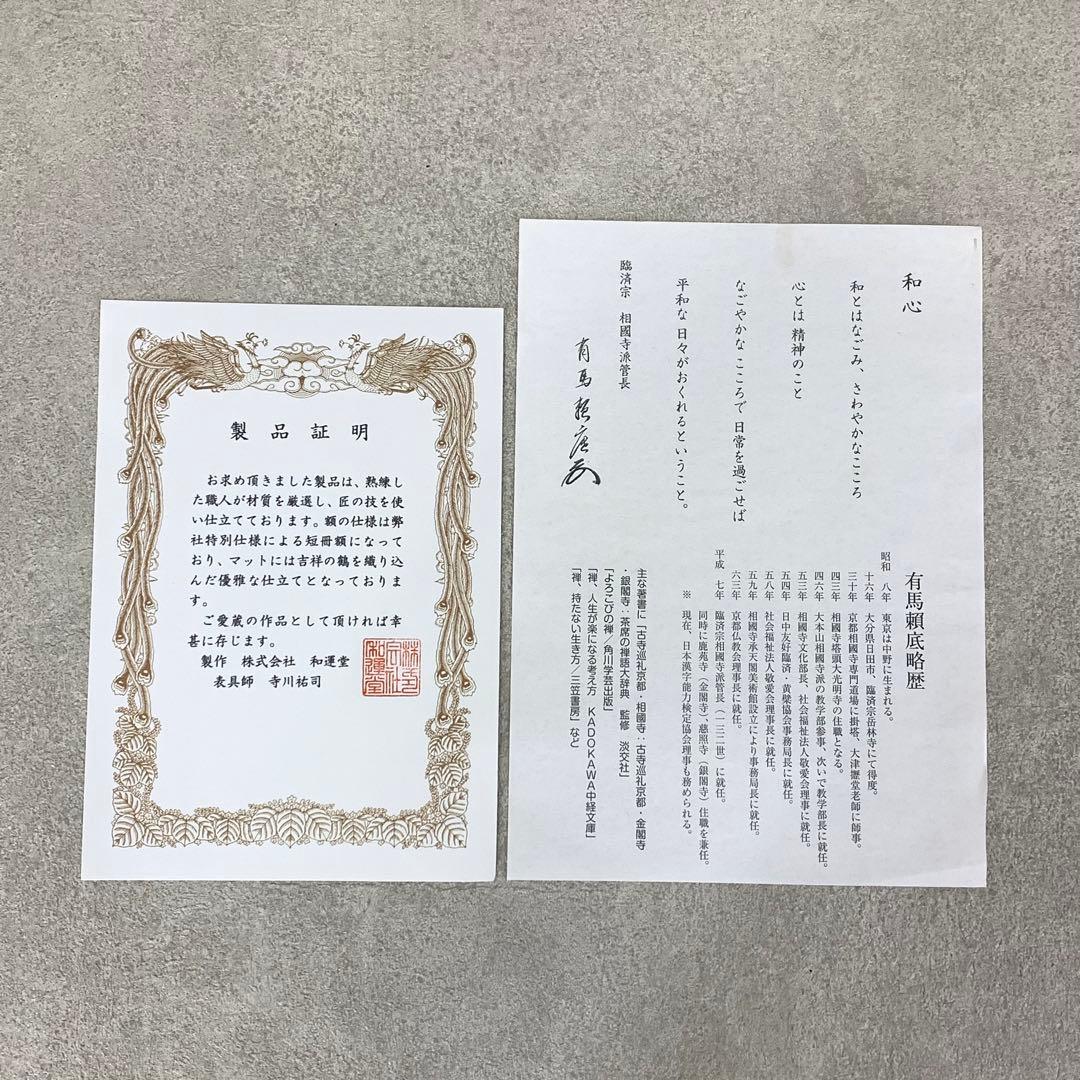 製品証明
お求め頂きました製品は、熟練し
た職人が材質を厳選し、匠の技を使
い仕立てております。額の仕様は弊
社特別仕様による短冊額になって
おり、マットには吉祥の鶴を織り込
んだ優雅な仕立てとなっておりま
す。
ご愛蔵の作品として頂ければ幸
甚に存じます。
製作 株式会社 和運堂
表具師 寺川祐司
株式会社和運堂
和心
和とはなごみ、さわやかなこころ
心とは 精神のこと
なごやかな こころで 日常を過ごせば
平和な 日々がおくれるということ。
臨済宗 相國寺派管長
有馬頼底
有馬頼底略歴
昭和 八年 東京は中野に生まれる。
十六年 大分県日田市、臨済宗岳林寺にて得度。
三十年 京都相國寺専門道場に掛塔、大津櫪堂老師に師事。
四三年 相國寺塔頭大光明寺の住職となる。
四六年 大本山相國寺派の教学部参事、次いで教学部長に就任。
五三年 相國寺文化部長、社会福祉法人敬愛会理事に就任。
五四年 日中友好臨済・黄檗協会事務局長に就任。
五八年 社会福祉法人敬愛会理事長に就任。
五九年 相國寺承天閣美術館設立により事務局長に就任。
六三年 京都仏教会理事長に就任。
平成 七年 臨済宗相國寺派管長(一三二世)に就任。
同時に鹿苑寺(金閣寺)、慈照寺(銀閣寺)住職を兼任。
※ 現在、日本漢字能力検定協会理事も務められる。
主な著書に「古寺巡礼京都・相國寺:古寺巡礼京都・金閣寺
・銀閣寺:茶席の禅語大辞典 監修 淡交社」
「よろこびの禅/角川学芸出版」
「禅、人生が楽になる考え方 KADOKAWA中経文庫」
「禅、持たない生き方/三笠書房」など